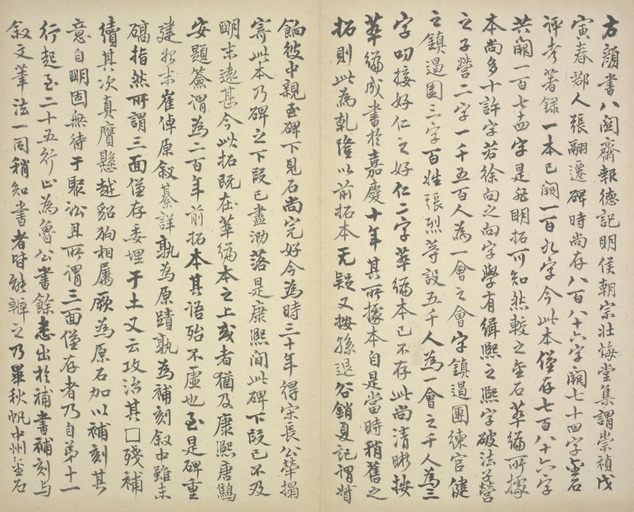 右顏書八関齋報德記明侯朝宗壯悔堂集謂崇禎戊
寅春鄰人張翮遷碑時尚存八百八十六字闕七十四字金石
評考著錄一本已闕一百九字今此本僅存七百八十六字
共闕一百七十四字是非明拓可知然較之金石萃編所據
本尚多十許字若徐向之向字學有緝熙之熙字破法子營
之子營二字一千五百人為一會之會字鎮遏團練官健
之鎮遏團三字百姓張烈等設五千人為一會之千人為三
字叨接好仁之好仁二字萃編本已不存此尚清晰按
萃編成書於嘉慶十年其所據本自是當時稍舊之
拓則此為乾隆以前拓本无疑又按孫退谷銷夏記謂嘗
餉彼中親至碑下見石尚完好今為時三十年得宋長公華搨
寄此本乃碑之下段已盡泐落是康熙間此碑下段已不及
明末遠甚今此拓既在萃編本之上或者猶及康熙唐鷦
安題簽謂為二百年前拓本其語殆不虛也至是碑重
建於宋崔倬原叙綦詳孰為原蹟孰為補刻叙中雖未
礭指然所謂三面僅存委埋于土又云攻治其□殘補
續其次真贗懸越貂狗相属厥為原石加以補刻其
意自明固無待于聚訟且所謂三面僅存者乃自第十一
行起至二十五行止為魯公書餘悉出於補書補刻与
叙文筆法一同稍知書者皆能辨之乃畢秋帆中州金石